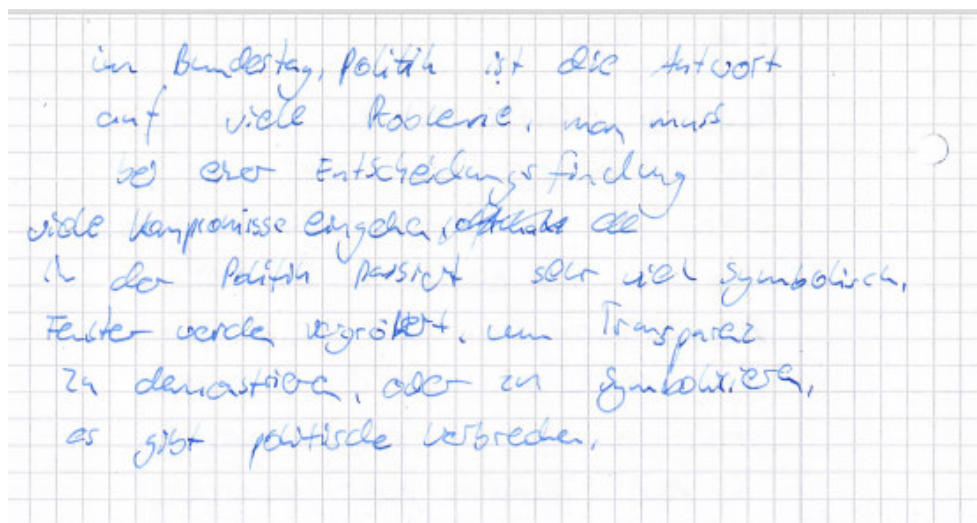 im Bundestag, Politik ist die Antwort
auf viele Probleme, man muss
bei einer Entscheidungsfindung
viele Kompromisse eingehen,
in der Politik passiert sehr viel symbolisch,
Fenster werden vergrößert, um Transparenz
zu demonstrieren, oder zu symbolisieren,
es gibt politische Verbrechen,